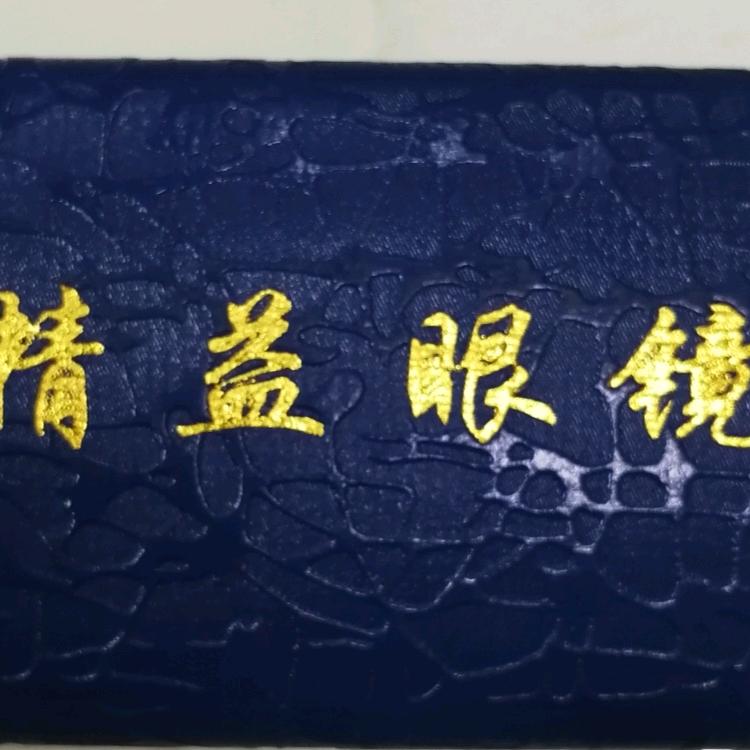 精益眼镜